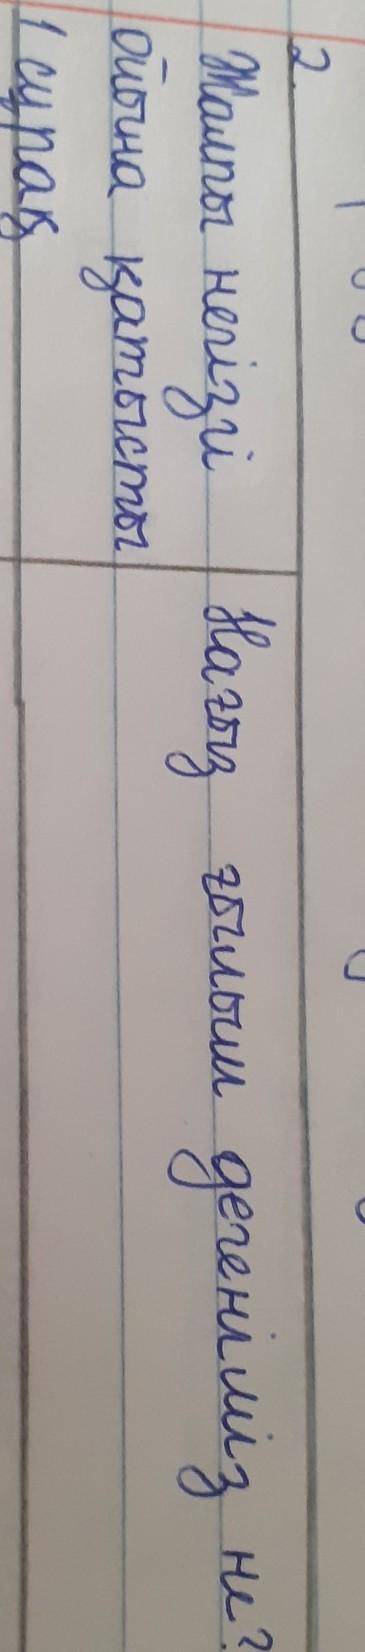 2.
Жалпы негізгі
ойына қатысты
1 сұрақ
Нағыз ғылым дегеніміз не?